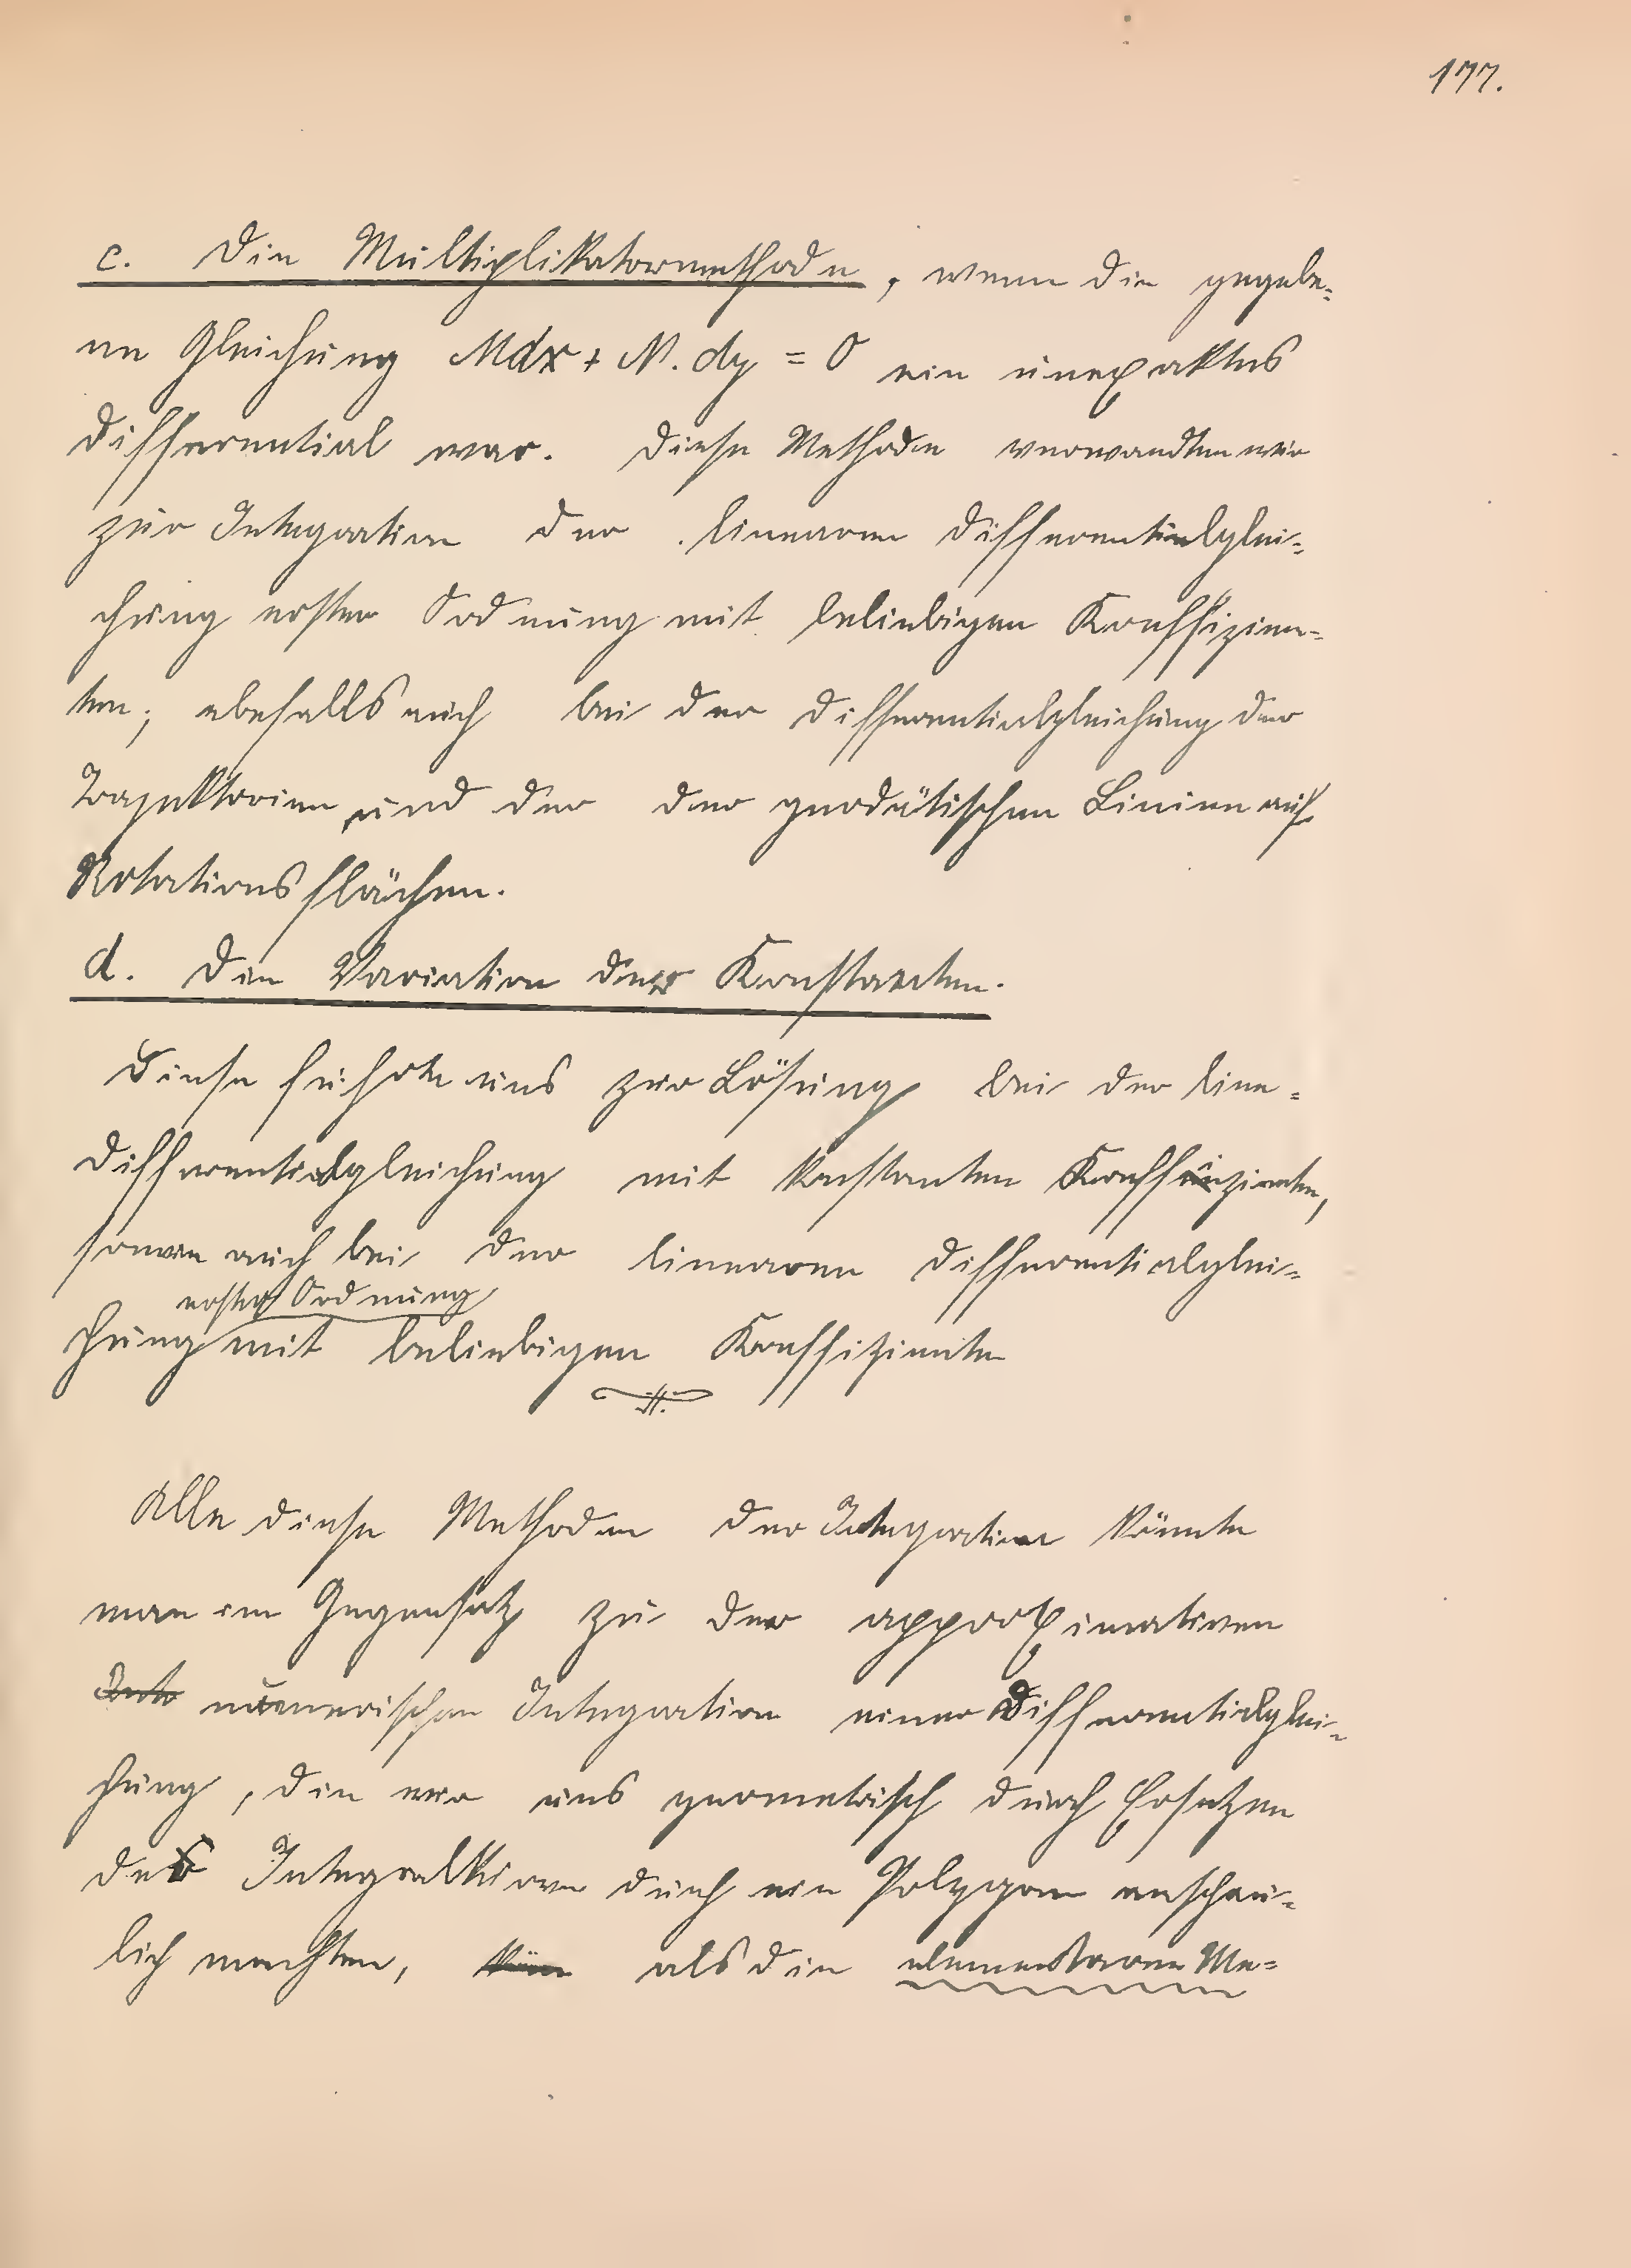 177.
c. Die Multiplikatormethode, wenn die gegebe-
ne Gleichung Mdx + N. dy = 0 ein unexaktes
Differential war. Diese Methode verwandten wir
zur Integration der linearen Differentialglei-
chung erster Ordnung mit beliebigen Koeffizien-
ten; ebefalls auch bei der Differentialgleichung der
Trajektorien und der der geodätischen Linien auf
Rotationsflächen.
d. Die Variation der Konstanten.
Diese führte uns zur Lösung bei der line-
Differentialgleichung mit konstanten Koeffizienten,
sowie auch bei der linearen Differentialglei-
erster Ordnung
chung mit beliebigen Koeffizienten
Alle diese Methoden der Integration könnte
man im Gegensatz zu der approximativen
Inte numerischen Integration einer Differentialglei-
chung, die wir uns geometrisch durch Ersetzen
der Integralkurve durch ein Polygon anschau-
lich machten, als die elementaren Me-